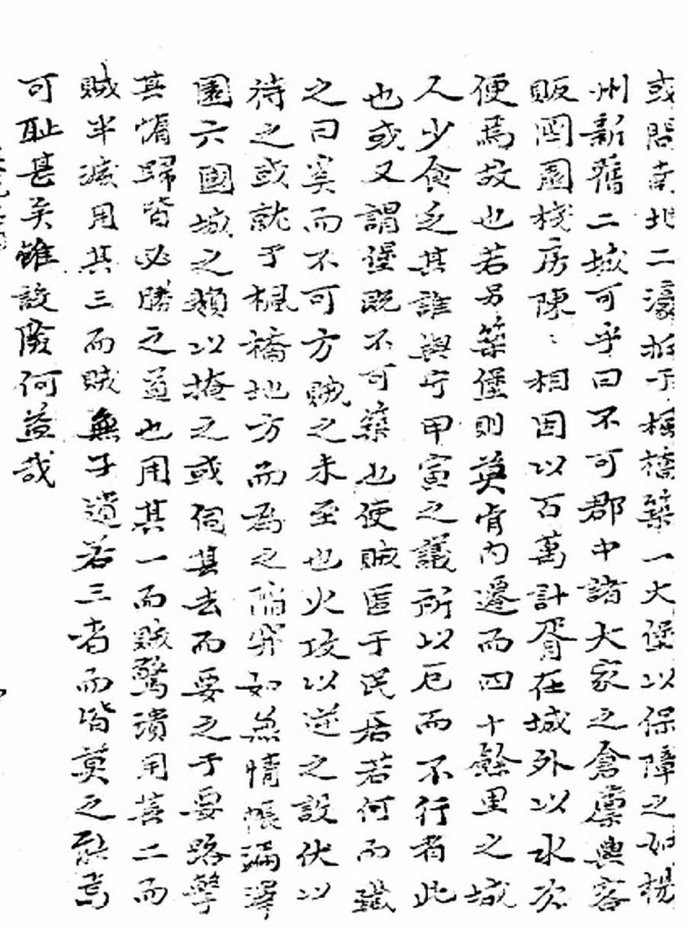 或問南北二濠拓于楓橋築一大堡以保障之如楊
州新舊二城可乎曰不可郡中諸大家之倉廩與客
販園棧房陳〻相因以百萬計胥在城外以水次
便焉故也若另築堡則莫肯內遷而四十餘里之城
人少食乏其誰與守甲寅之議所以厄而不行者此
也或又謂堡既不可築也使賊匿于民居若何而殲
之曰奚而不可方賊之未至也火攻以逆之設伏以
待之或就于楓橋地方而為之陷穽如無情帳滿澤
園六國城之類以掩之或伺其去而要之于要路擊
其惰歸皆必勝之道也用其一而賊驚潰用其二而
賊半滅用其三而賊無孑遺若三者而皆莫之能焉
可恥甚矣雖設險何益哉